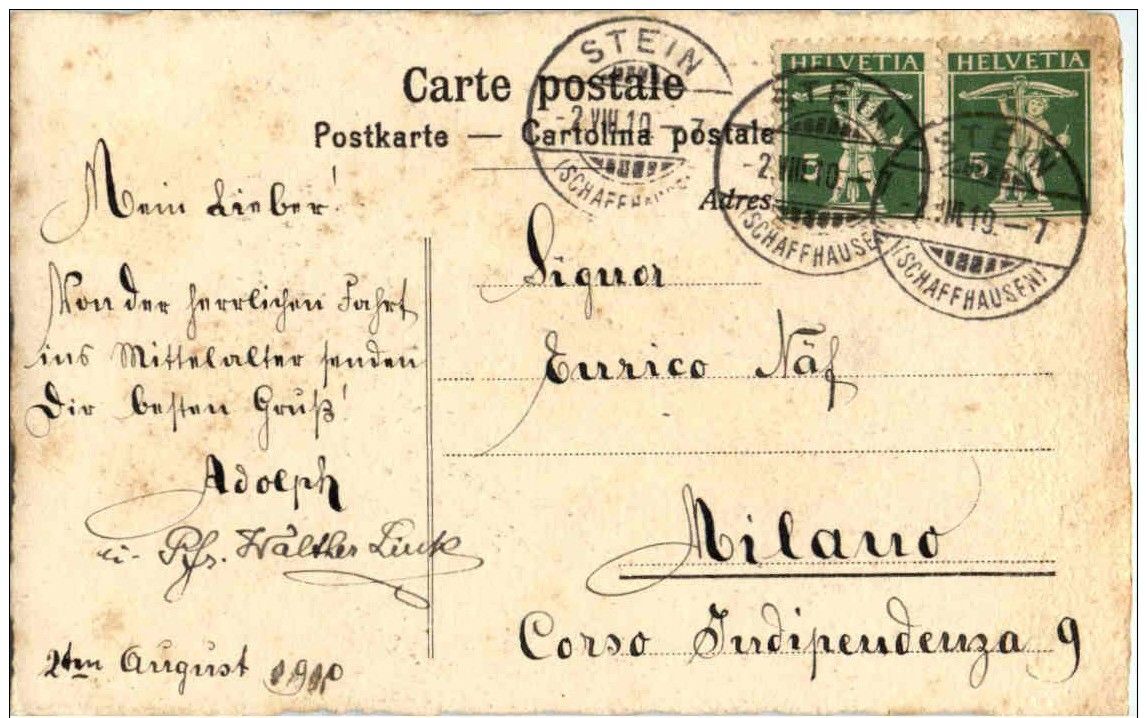 Carte postale
Postkarte — Cartolina postale
Adres
STEIN
-2.VIII.10.-7
(SCHAFFHAUSEN)
HELVETIA
5
HELVETIA
5
STEIN
-2.VIII.10.
(SCHAFFHAUSE
STEIN
-2.VIII.10.-7
(SCHAFFHAUSEN)
Mein Lieber!
Von der herrlichen Fahrt
ins Mittelalter senden
Dir besten Gruß!
Adolph
u. Pfr. Walther Linck
2ten August 1910
Signor
Enrico Näf
Milano
Corso Indipendenza 9